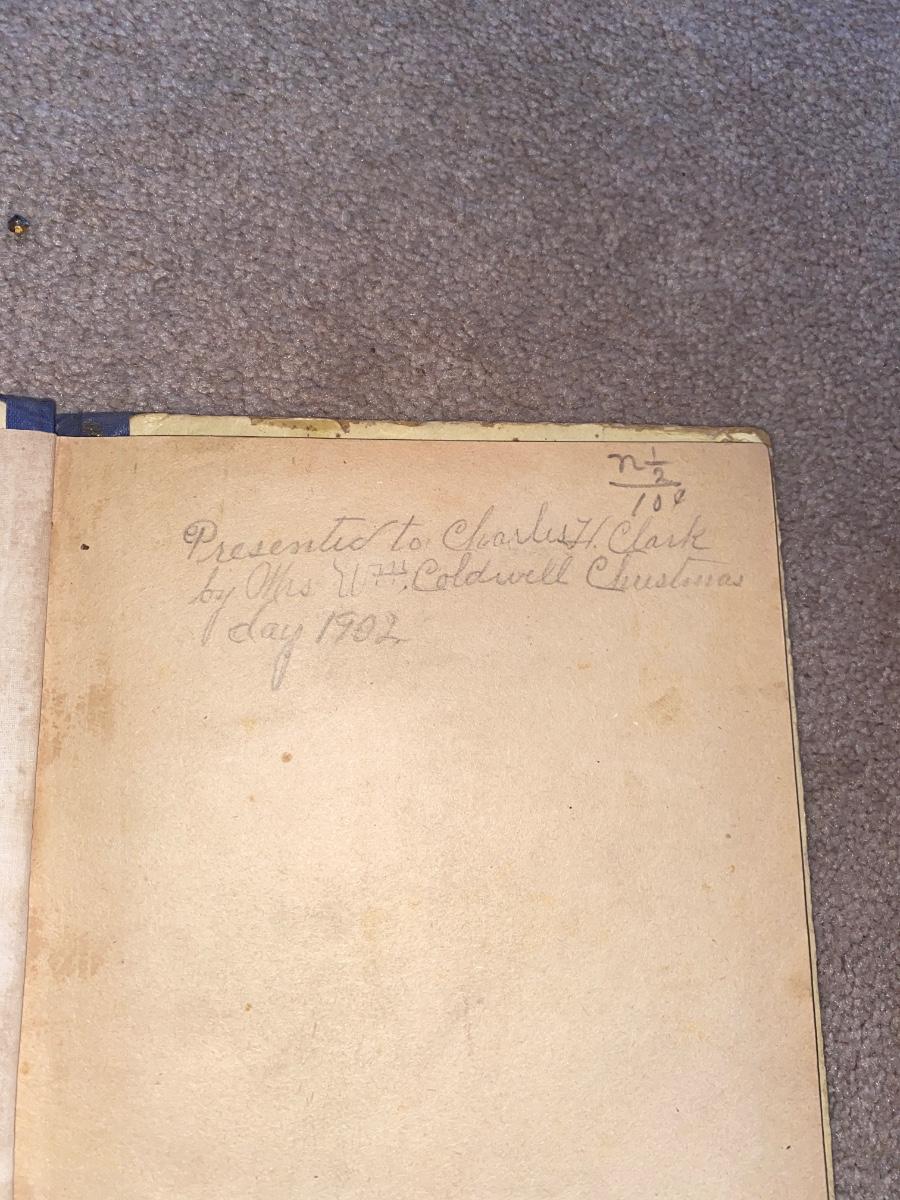 n 1/2
10¢
Presented to Charles H. Clark
by Mrs Wm. Coldwell Christmas
day 1902